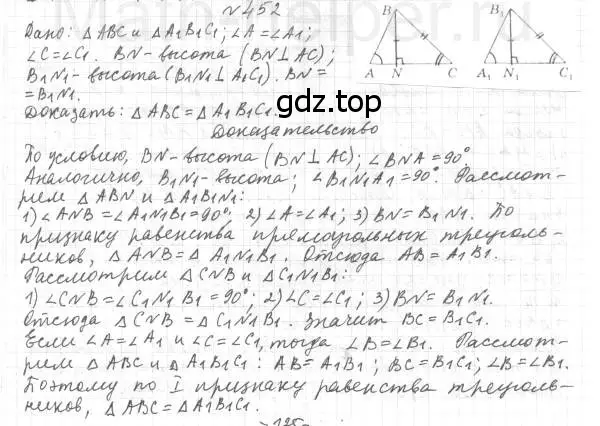 N452
Дано: △ABC и △A1B1C1; ∠A=∠A1;
∠C=∠C1. BN-высота (BN⊥AC);
B1N1-высота (B1N1⊥A1C1). BN=
=B1N1.
Доказать: △ABC=△A1B1C1.
B
A N C
B1
A1 N1 C1
gdz.top
Доказательство
По условию, BN-высота (BN⊥AC); ∠BNA=90°.
Аналогично, B1N1-высота; ∠B1N1A1=90°. Рассмот-
рим △ABN и △A1B1N1:
1) ∠ANB=∠A1N1B1=90°; 2) ∠A=∠A1; 3) BN=B1N1. По
признаку равенства прямоугольных треуголь-
ников, △ANB=△A1N1B1. Отсюда AB=A1B1.
Рассмотрим △CNB и △C1N1B1:
1) ∠CNB=∠C1N1B1=90°; 2) ∠C=∠C1; 3) BN=B1N1.
Отсюда △CNB=△C1N1B1. Значит BC=B1C1.
Если ∠A=∠A1 и ∠C=∠C1, тогда ∠B=∠B1. Рассмот-
рим △ABC и △A1B1C1: AB=A1B1; BC=B1C1; ∠B=∠B1.
Поэтому по I признаку равенства треуголь-
ников, △ABC=△A1B1C1.